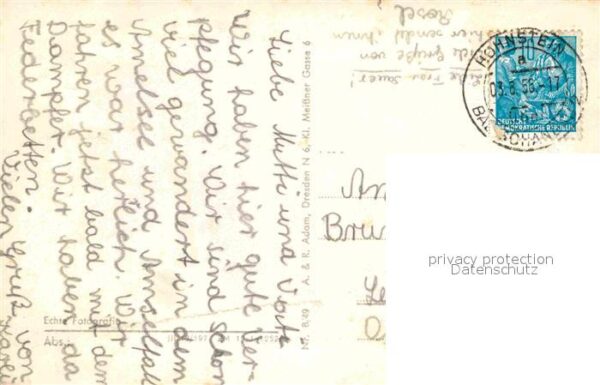 Liebe Mutti und Vati
Wir haben hier gute Ver-
pflegung. Wir sind schon
viel gewandert in dem
Amelsee und Amselfall
es war herlich. Wir
fahren jetzt bald mit dem
Dampfer. Wir haben da
Federbetten.
Vielen Gruß von
Liebe Frau
Viele Grüße von
sendet ihnen
Rosel
HOHNSTEIN
a
03.8.56.-17
DEUTSCHE
DEMOKRATISCHE REPUBLIK
Nr. B 49 A. & R. Adam, Dresden N 6, Kl. Meißner Gasse 6
Echte Fotografie
Abs.:
An
Bru
privacy protection
Datenschutz